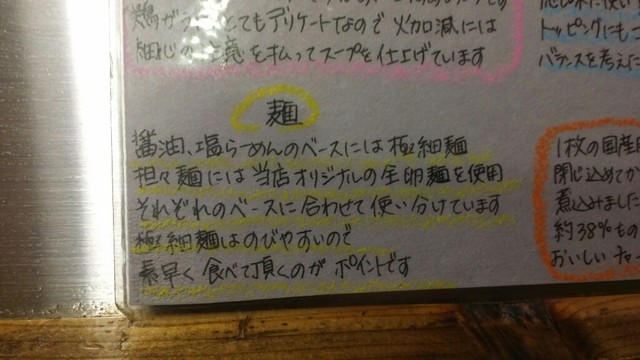 鶏ガラ とてもデリケートなので 火加減には
細心の注意を払ってスープを仕上げています
トッピングにも
バランスを考えた
麺
醤油、塩らーめんのベースには 極細麺
担々麺には 当店オリジナルの全卵麺を使用
それぞれのベースに合わせて使い分けています
極細麺はのびやすいので
素早く 食べて頂くのが ポイントです
1枚の国産
閉じ込めて
煮込みました
約38%もの
おいしいチャー